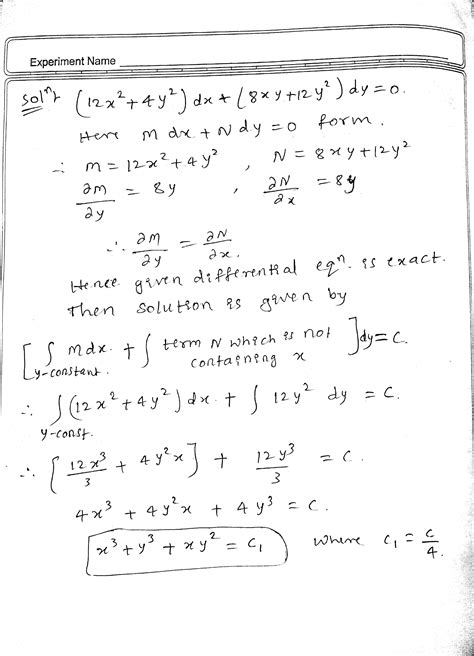 Experiment Name
Solⁿ> (12x² + 4y²) dx + (8xy + 12y²) dy = 0.
Here M dx + N dy = 0 form.
∴ M = 12x² + 4y² , N = 8xy + 12y²
∂M/∂y = 8y , ∂N/∂x = 8y
∴ ∂M/∂y = ∂N/∂x.
Hence given differential eqⁿ. is exact.
Then solution is given by
[∫ Mdx + ∫ term N which is not containing x ]dy = C.
y-constant.
∴ ∫(12x² + 4y²) dx + ∫ 12y² dy = C.
y-const.
∴ [12x³/3 + 4y²x] + 12y³/3 = C.
4x³ + 4y²x + 4y³ = C.
x³ + y³ + xy² = C₁ where C₁ = C/4.